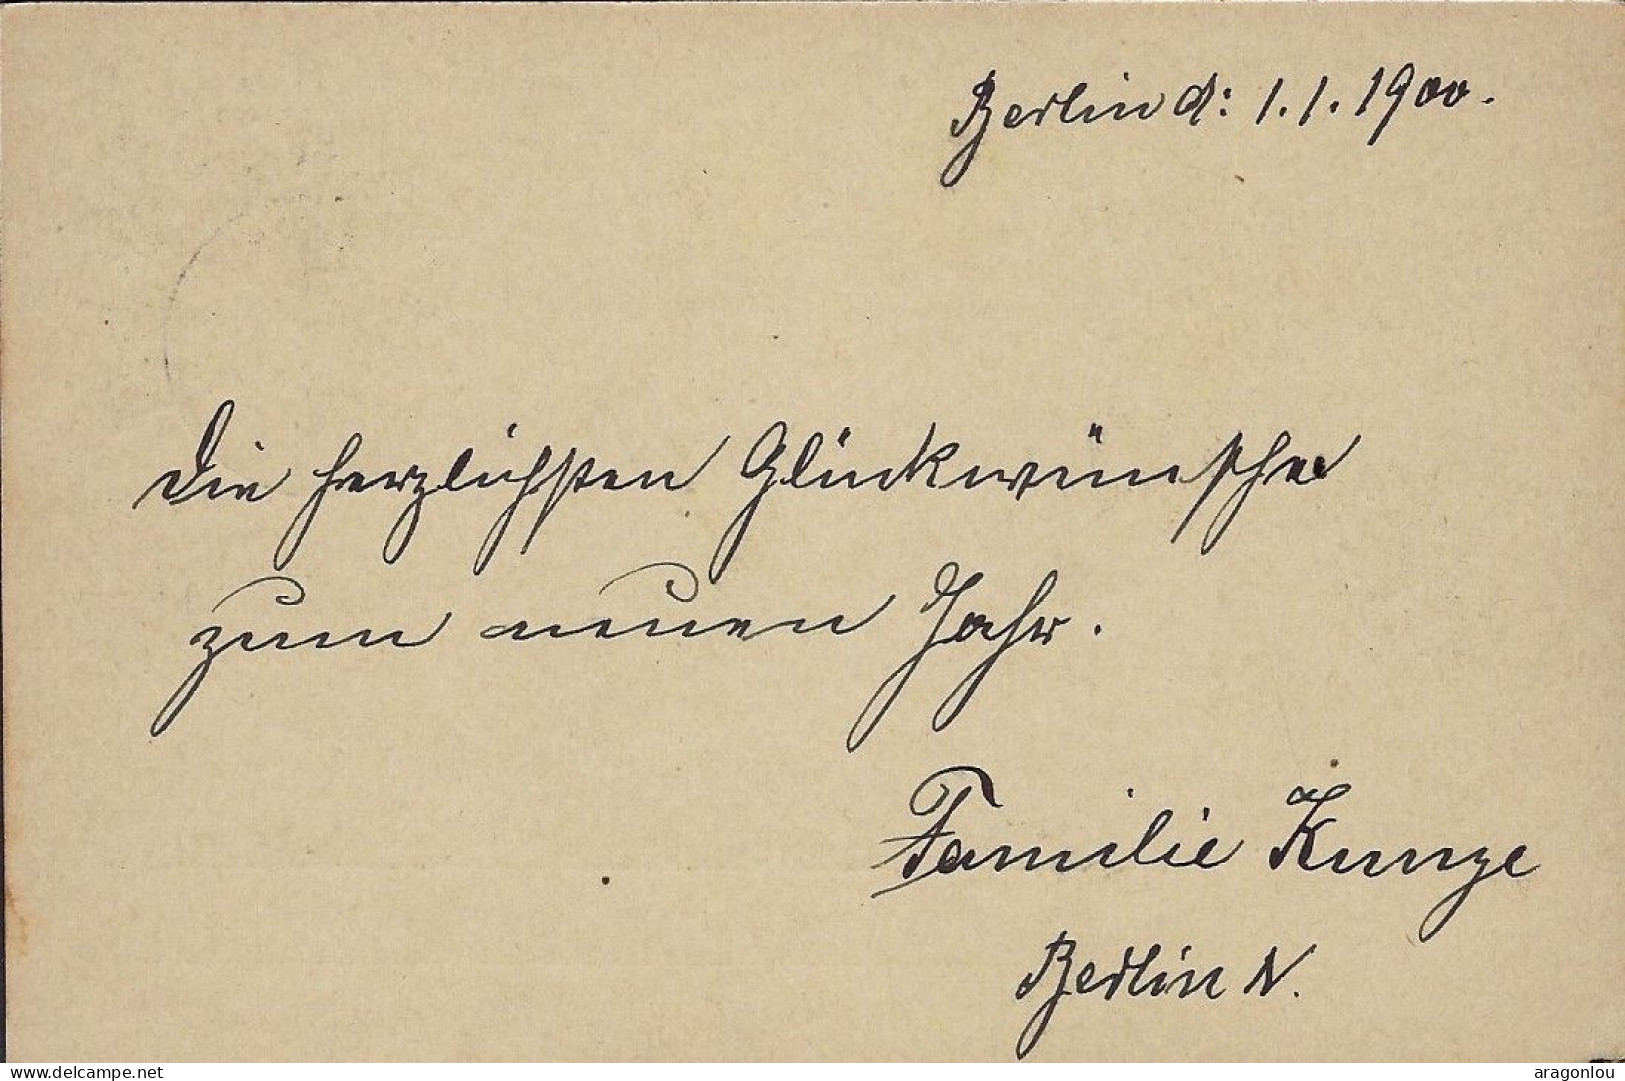 Berlin d: 1.1.1900.
Die herzlichsten Glückwünsche
zum neuen Jahr.
Familie Kunze
Berlin N.
www.delcampe.net
aragonlou